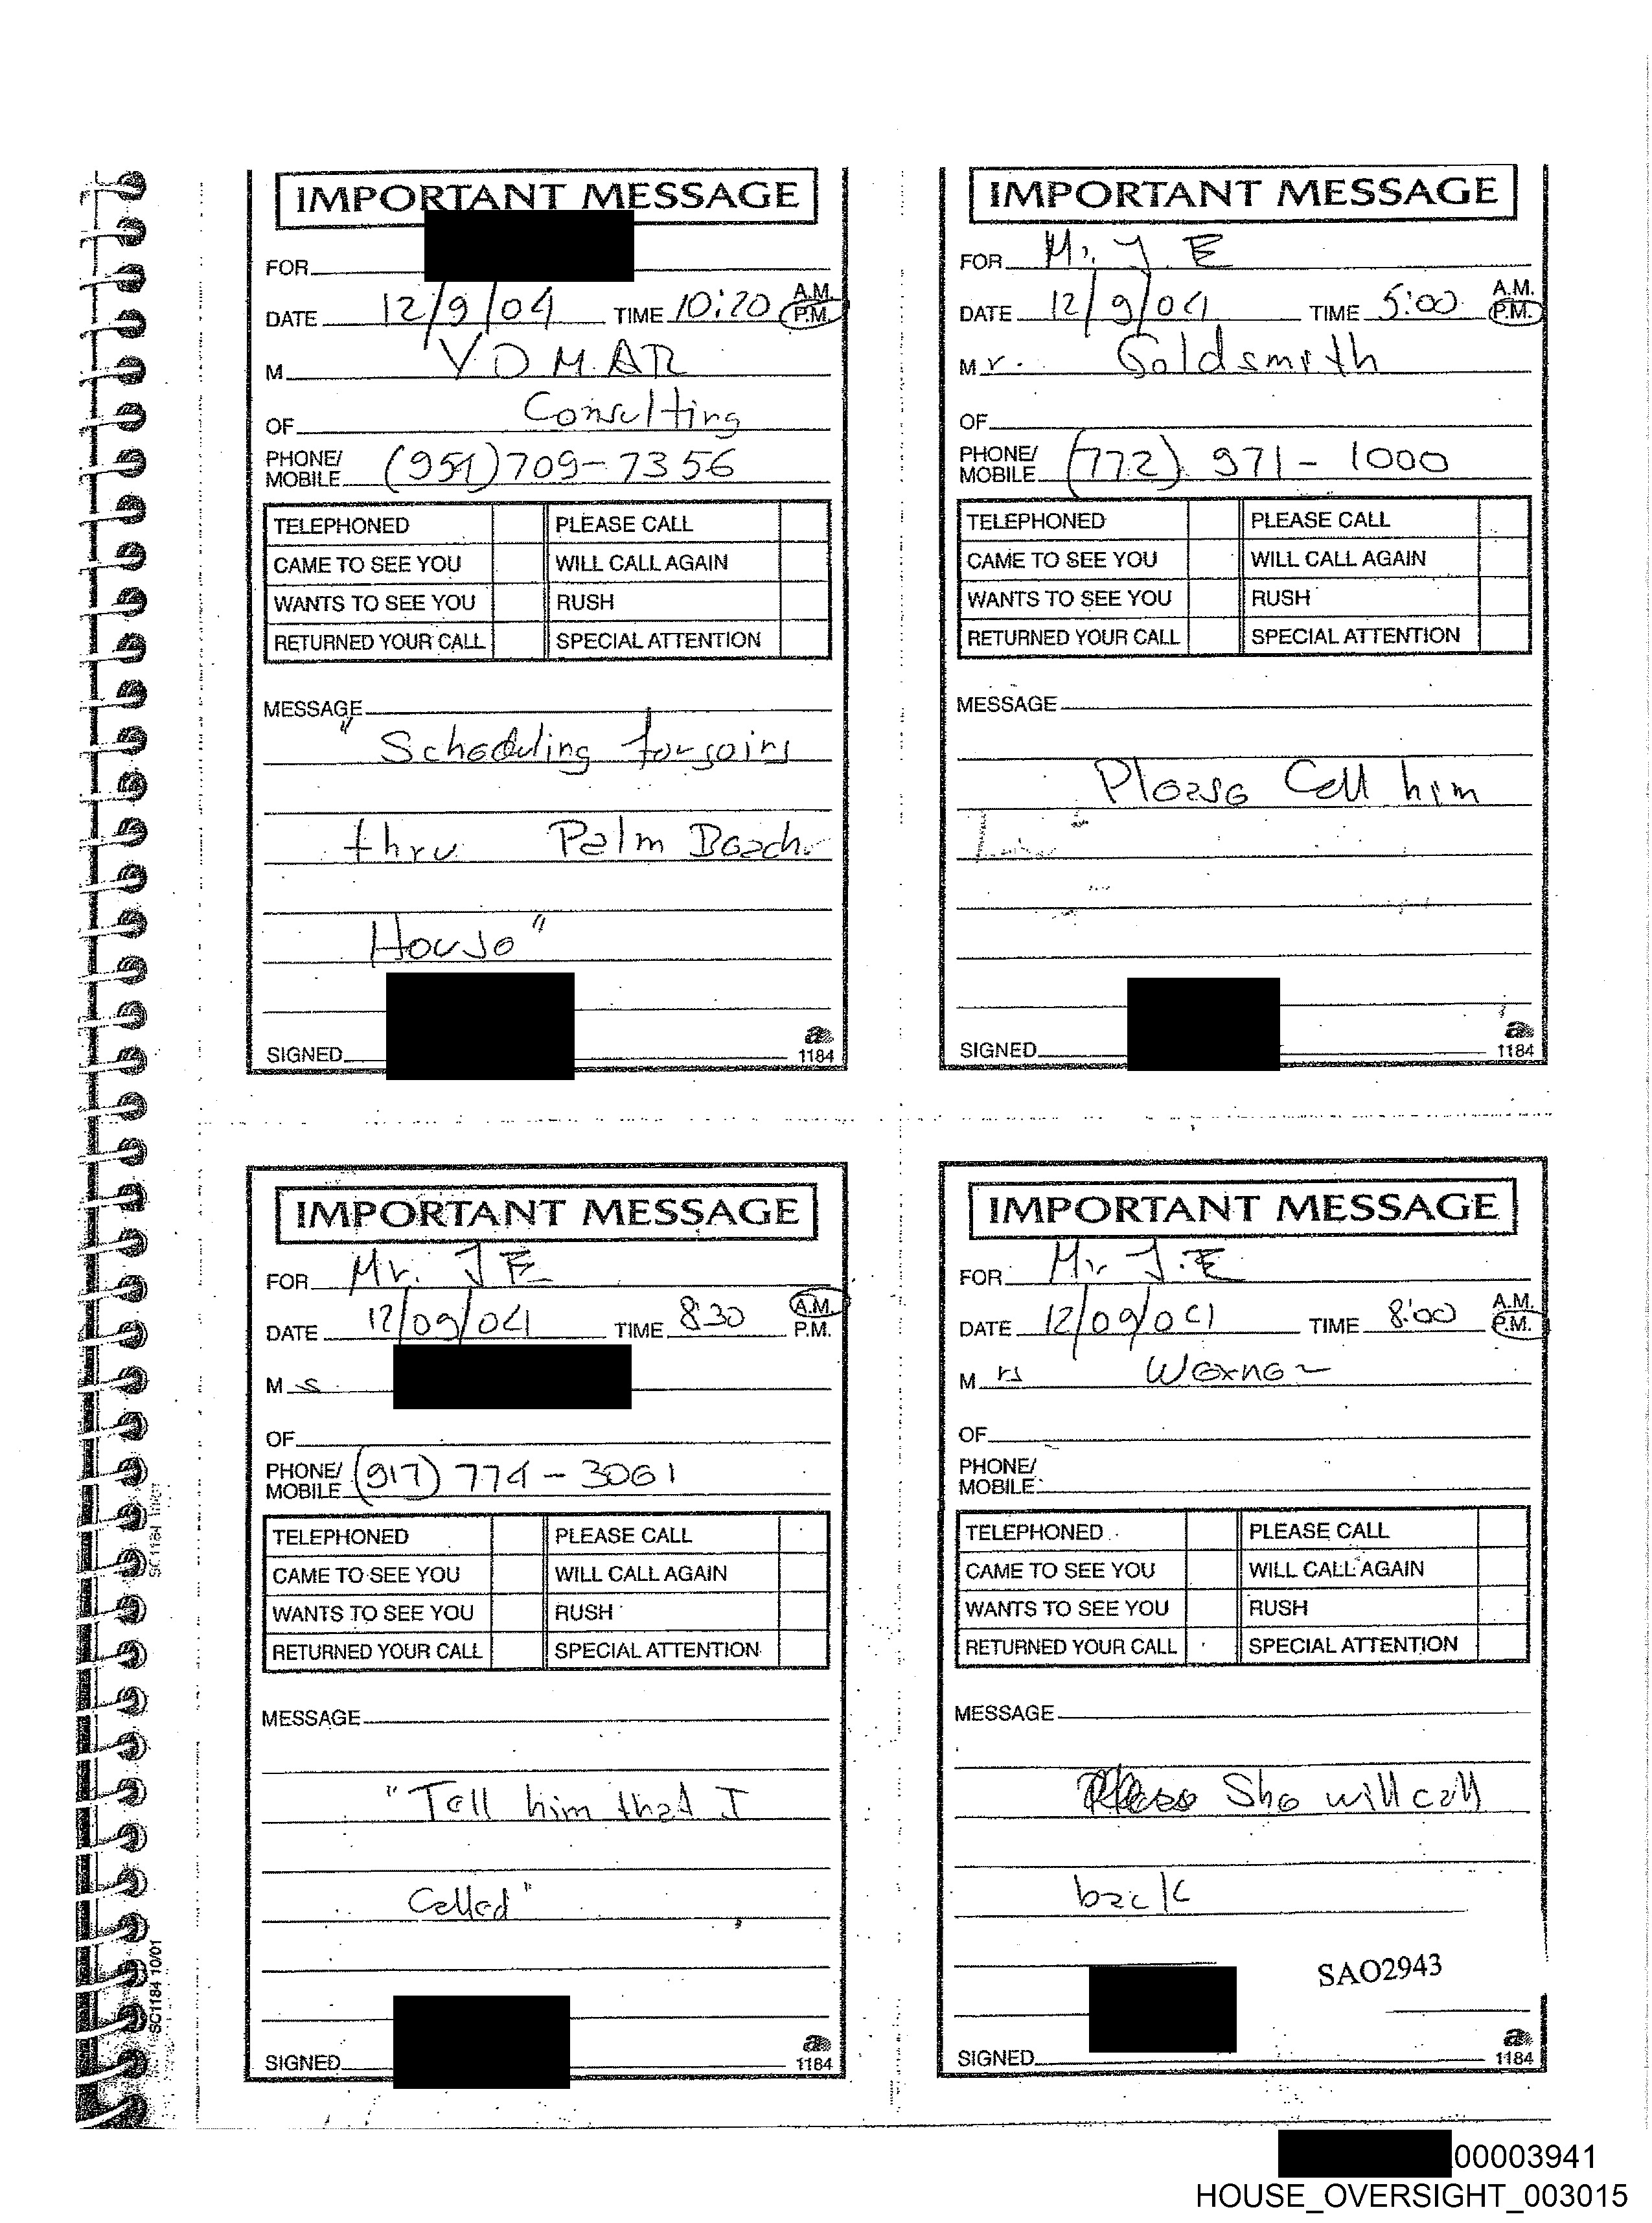 IMPORTANT MESSAGE
FOR
DATE 12/9/04 TIME 10:20 A.M. P.M.
M VOMAR
OF Consulting
PHONE/ MOBILE (954) 709-7356
TELEPHONED PLEASE CALL
CAME TO SEE YOU WILL CALL AGAIN
WANTS TO SEE YOU RUSH
RETURNED YOUR CALL SPECIAL ATTENTION
MESSAGE
" Scheduling for going
thru Palm Beach
House "
SIGNED
a
1184
IMPORTANT MESSAGE
FOR Mr. J E
DATE 12/9/04 TIME 5:00 A.M. P.M.
Mr. Goldsmith
OF
PHONE/ MOBILE (772) 971-1000
TELEPHONED PLEASE CALL
CAME TO SEE YOU WILL CALL AGAIN
WANTS TO SEE YOU RUSH
RETURNED YOUR CALL SPECIAL ATTENTION
MESSAGE
Please Call him
SIGNED
a
1184
IMPORTANT MESSAGE
FOR Mr. J E
DATE 12/09/04 TIME 8:30 A.M. P.M.
Ms.
OF
PHONE/ MOBILE (917) 774-3061
TELEPHONED PLEASE CALL
CAME TO SEE YOU WILL CALL AGAIN
WANTS TO SEE YOU RUSH
RETURNED YOUR CALL SPECIAL ATTENTION
MESSAGE
"Tell him that I
Called"
SIGNED
a
1184
IMPORTANT MESSAGE
FOR Mr. J. E
DATE 12/09/04 TIME 8:00 A.M. P.M.
Mrs Wexner
OF
PHONE/ MOBILE
TELEPHONED PLEASE CALL
CAME TO SEE YOU WILL CALL AGAIN
WANTS TO SEE YOU RUSH
RETURNED YOUR CALL SPECIAL ATTENTION
MESSAGE
She will call
back
SAO2943
SIGNED
a
1184
SC1184 10/01
00003941
HOUSE_OVERSIGHT_003015